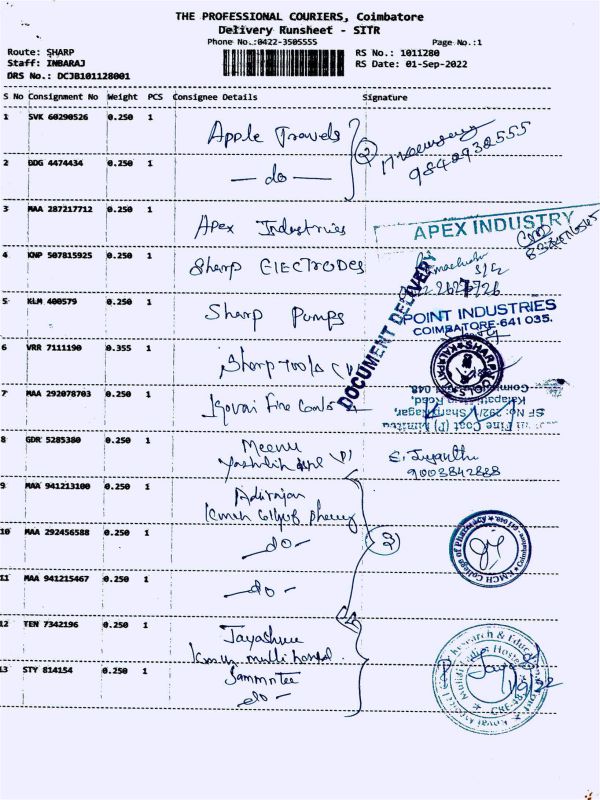 THE PROFESSIONAL COURIERS, Coimbatore
Delivery Runsheet - SITR
Phone No.:0422-3505555
Page No.:1
Route: SHARP
RS No.: 1011280
Staff: INBARAJ
RS Date: 01-Sep-2022
DRS No.: DCJB101128001
S No Consignment No Weight PCS Consignee Details Signature
1 SVK 60290526 0.250 1 Apple Travels
9842932555
2 BDG 4474434 0.250 1 — do —
3 MAA 287217712 0.250 1 Apex Industries
APEX INDUSTRY
4 KNP 507815925 0.250 1 Sharp ELECTRODES
DOCUMENT DELIVERY
5 KLM 400579 0.250 1 Sharp Pumps
POINT INDUSTRIES
COIMBATORE-641 035.
6 VRR 7111190 0.355 1 Sharp Tools
7 MAA 292078703 0.250 1 Kovai Fine Coat
SF No: 292/1, Sharp Nagar,
Kalapatti Main Road,
8 GDR 5285380 0.250 1 Meenu
9003842888
9 MAA 941213100 0.250 1
10 MAA 292456588 0.250 1 — do —
KMCH College of Pharmacy
11 MAA 941215467 0.250 1 — do —
12 TEN 7342196 0.250 1 Jayashree
13 STY 814154 0.250 1
— do —